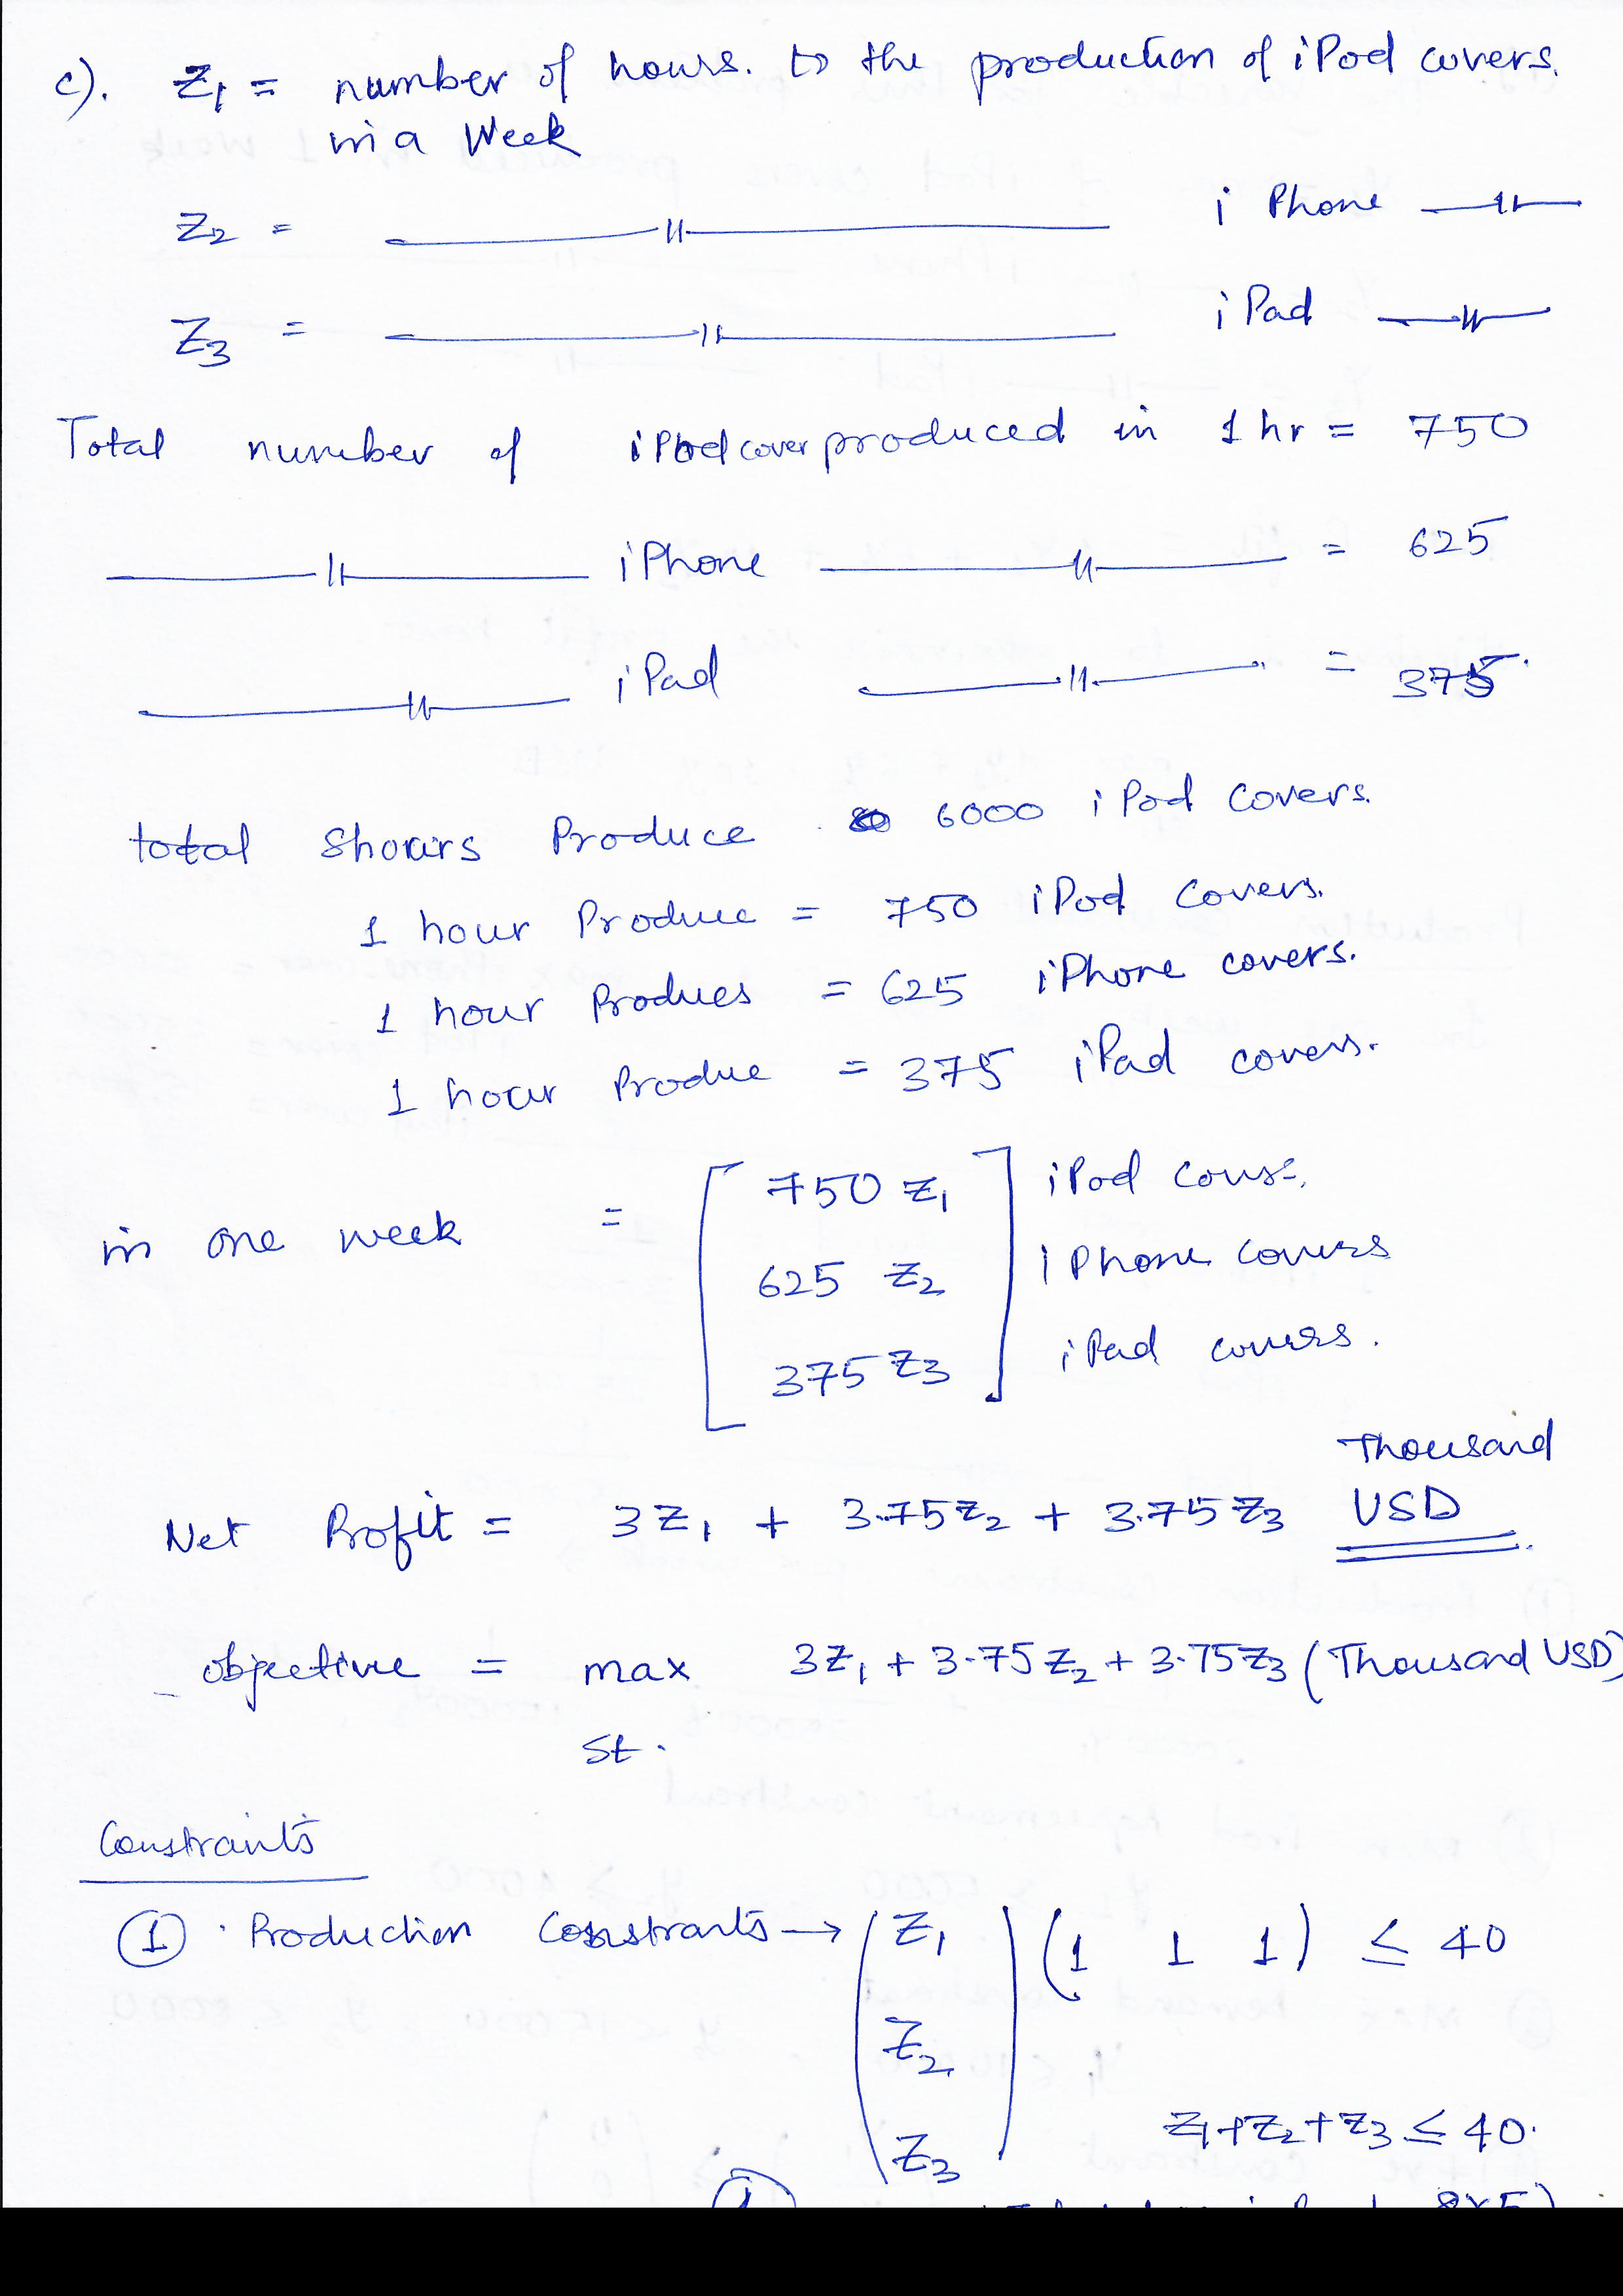 c). Z1 = number of hours. to the production of iPod covers.
in a Week
Z2 = —〃— i Phone —〃—
Z3 = —〃— i Pad —〃—
Total number of iPod cover produced in 1 hr = 750
—〃— iPhone —〃— = 625
—〃— iPad —〃— = 375.
total 8hours Produce 6000 iPod Covers.
1 hour Produce = 750 iPod Covers.
1 hour Produes = 625 iPhone covers.
1 hour Produe = 375 iPad covers.
in one week = [ 750 Z1 ] iPod
625 Z2 iPhone covers
375 Z3 iPad covers.
Thousand
Net Profit = 3Z1 + 3.75Z2 + 3.75Z3 USD
objective = max 3Z1 + 3.75Z2 + 3.75Z3 (Thousand USD)
St.
Constraints
① Production Constraints → ( Z1 ) (1 1 1) ≤ 40
Z2
Z1+Z2+Z3 ≤ 40.
Z3